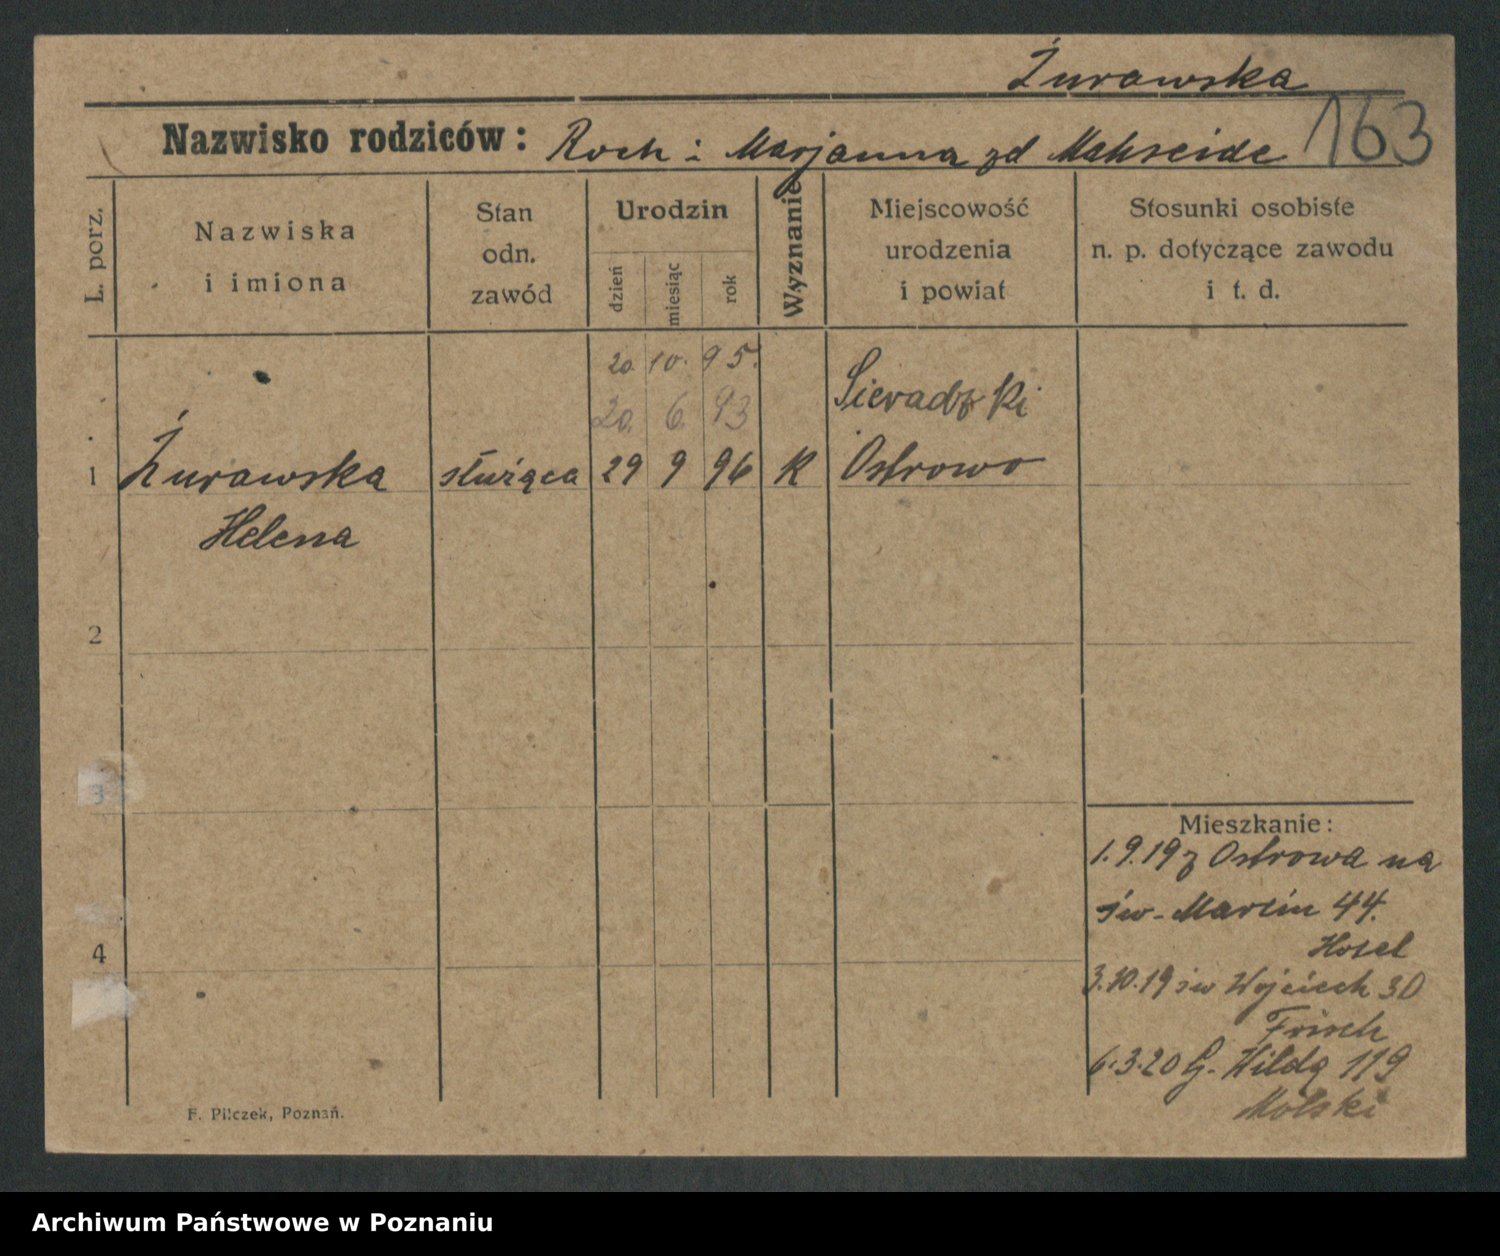 Żurawska
Nazwisko rodziców: Roch i Marjanna zd 163
L. porz.
Nazwiska
i imiona
Stan
odn.
zawód
Urodzin
dzień
miesiąc
rok
Wyznanie
Miejscowość
urodzenia
i powiat
Stosunki osobiste
n. p. dotyczące zawodu
i t. d.
20. 10. 95.
20. 6. 93
Sieradzki
1 Żurawska służąca 29 9 96 K Ostrowo
Helena
2
3
4
Mieszkanie:
1.9.19 z Ostrowa na
św. Marcin 44.
3.10.19 św Wojciech 30
Frisch
6.3.20 G. Wildą 119
Molski
F. Pilczek, Poznań.
Archiwum Państwowe w Poznaniu